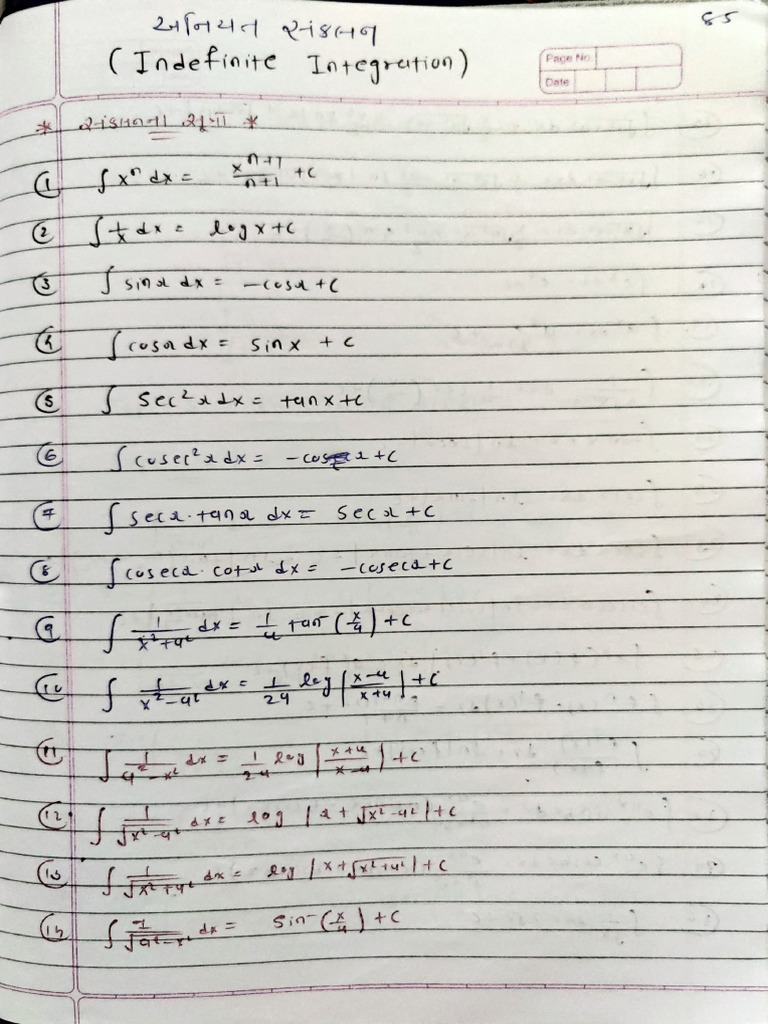 85
અનિયત સંકલન
( Indefinite Integration)
Page No.
Date
* સંકલનના સૂત્રો *
① ∫ xⁿ dx = xⁿ⁺¹/n+1 + c
② ∫ 1/x dx = log x + c
③ ∫ sin x dx = -cos x + c
④ ∫ cos x dx = sin x + c
⑤ ∫ sec² x dx = tan x + c
⑥ ∫ cosec² x dx = x + c
⑦ ∫ sec x · tan x dx = sec x + c
⑧ ∫ cosec x · cot x dx = -cosec x + c
⑨ ∫ 1/x²+a² dx = 1/a tan⁻ (x/a) + c
⑩ ∫ 1/x²-a² dx = 1/2a log |x-a/x+a| + c
⑪ ∫ 1/a²-x² dx = 1/2a log |x+a/x-a| + c
⑫ ∫ 1/√x²-a² dx = log |x + √x²-a²| + c
⑬ ∫ 1/√x²+a² dx = log |x + √x²+a²| + c
⑭ ∫ 1/√a²-x² dx = sin⁻ (x/a) + c